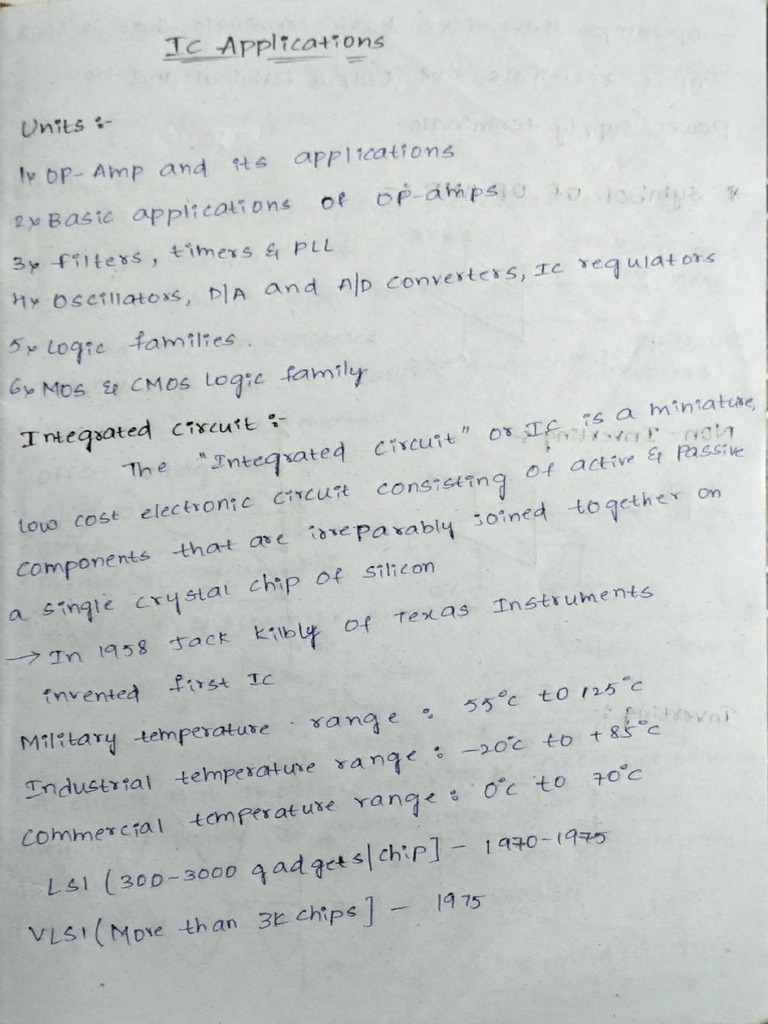 IC Applications
Units :-
1) OP-Amp and its applications
2) Basic applications of op-amps
3) filters, timers & PLL
4) Oscillators, D/A and A/D converters, IC regulators
5) Logic families.
6) MOS & CMOS Logic family
Integrated circuit :-
The "Integrated circuit" or IC is a miniature,
low cost electronic circuit consisting of active & Passive
components that are irreparably joined together on
a single crystal chip of silicon
→ In 1958 Jack Kilbly of Texas Instruments
invented first IC
Military temperature range : 55°c to 125°c
Industrial temperature range : -20°c to +85°c
commercial temperature range : 0°c to 70°c
LSI (300-3000 gadgets/chip] - 1970-1975
VLSI (More than 3K chips] - 1975